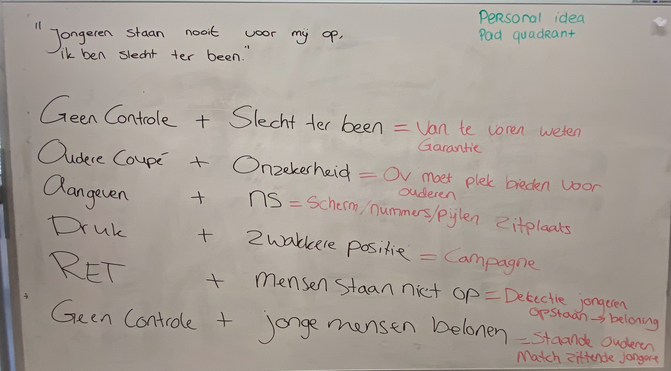 "Jongeren staan nooit voor mij op,
ik ben slecht ter been."
Personal idea
Pad quadrant
Geen Controle + Slecht ter been = Van te voren weten
Garantie
Oudere Coupé + Onzekerheid = OV moet plek bieden voor
ouderen
Aangeven + ns = Scherm/nummers/pijlen zitplaats
Druk + zwakkere positie = Campagne
RET + mensen staan niet op = Detectie jongeren
opstaan → beloning
Geen Controle + jonge mensen belonen = Staande ouderen
Match zittende jongere